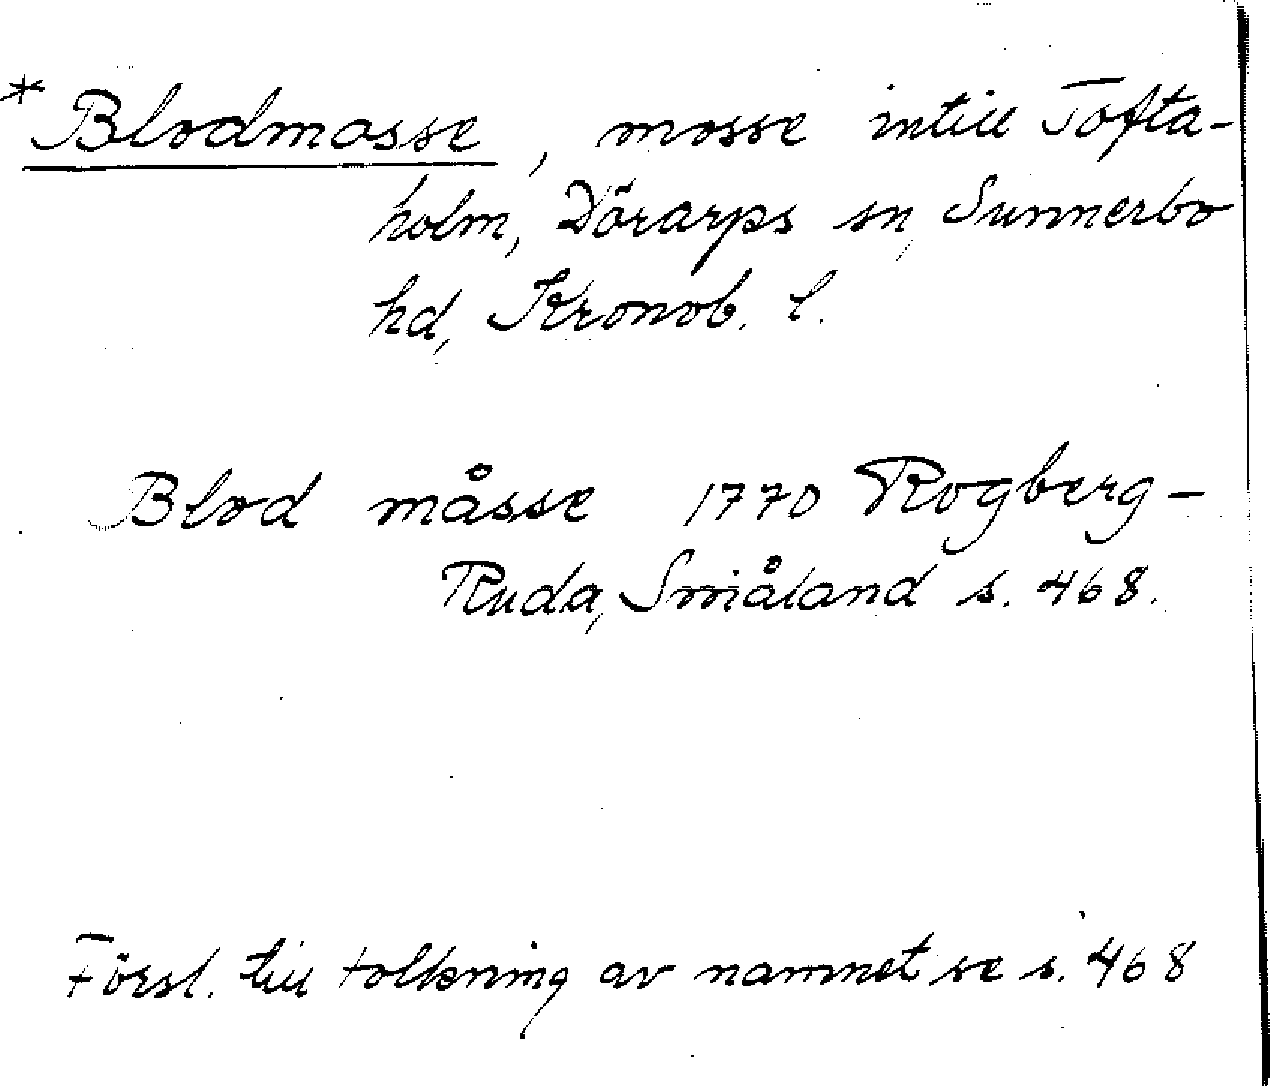 * Blodmosse, mosse intill Tofta-
holm, Dörarps sn, Sunnerbo
hd, Kronob. l.
Blod måsse 1770 Rogberg-
Ruda, Småland s. 468.
Försl. till tolkning av namnet se s. 468